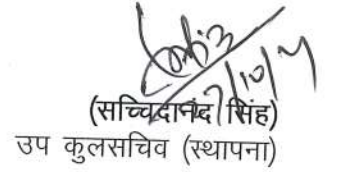 (सच्चिदानंद सिंह)
उप कुलसचिव (स्थापना)